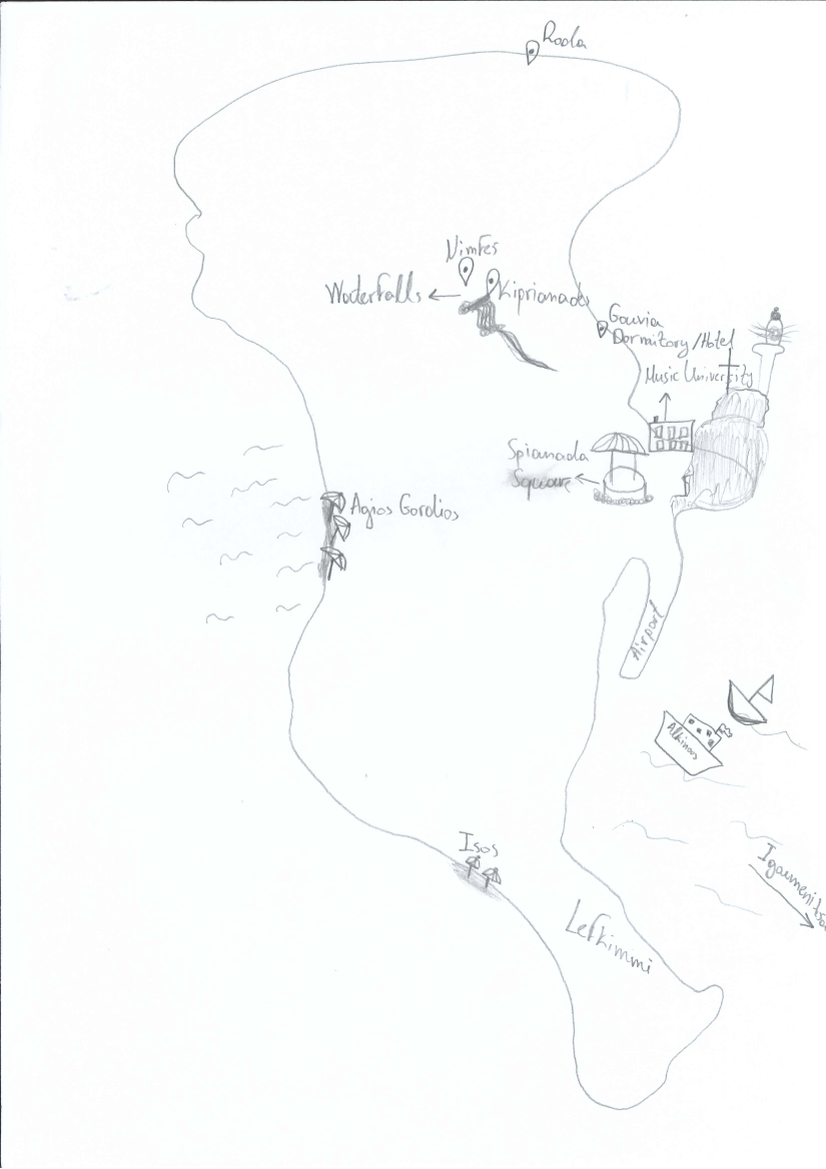 Roda
Nimfes
Waterfalls
Kiprianades
Gouvia
Dormitory/Hotel
Music University
Spianada
Square
Agios Gordios
Airport
Alkinoos
Igoumenitsa
Isos
Lefkimmi